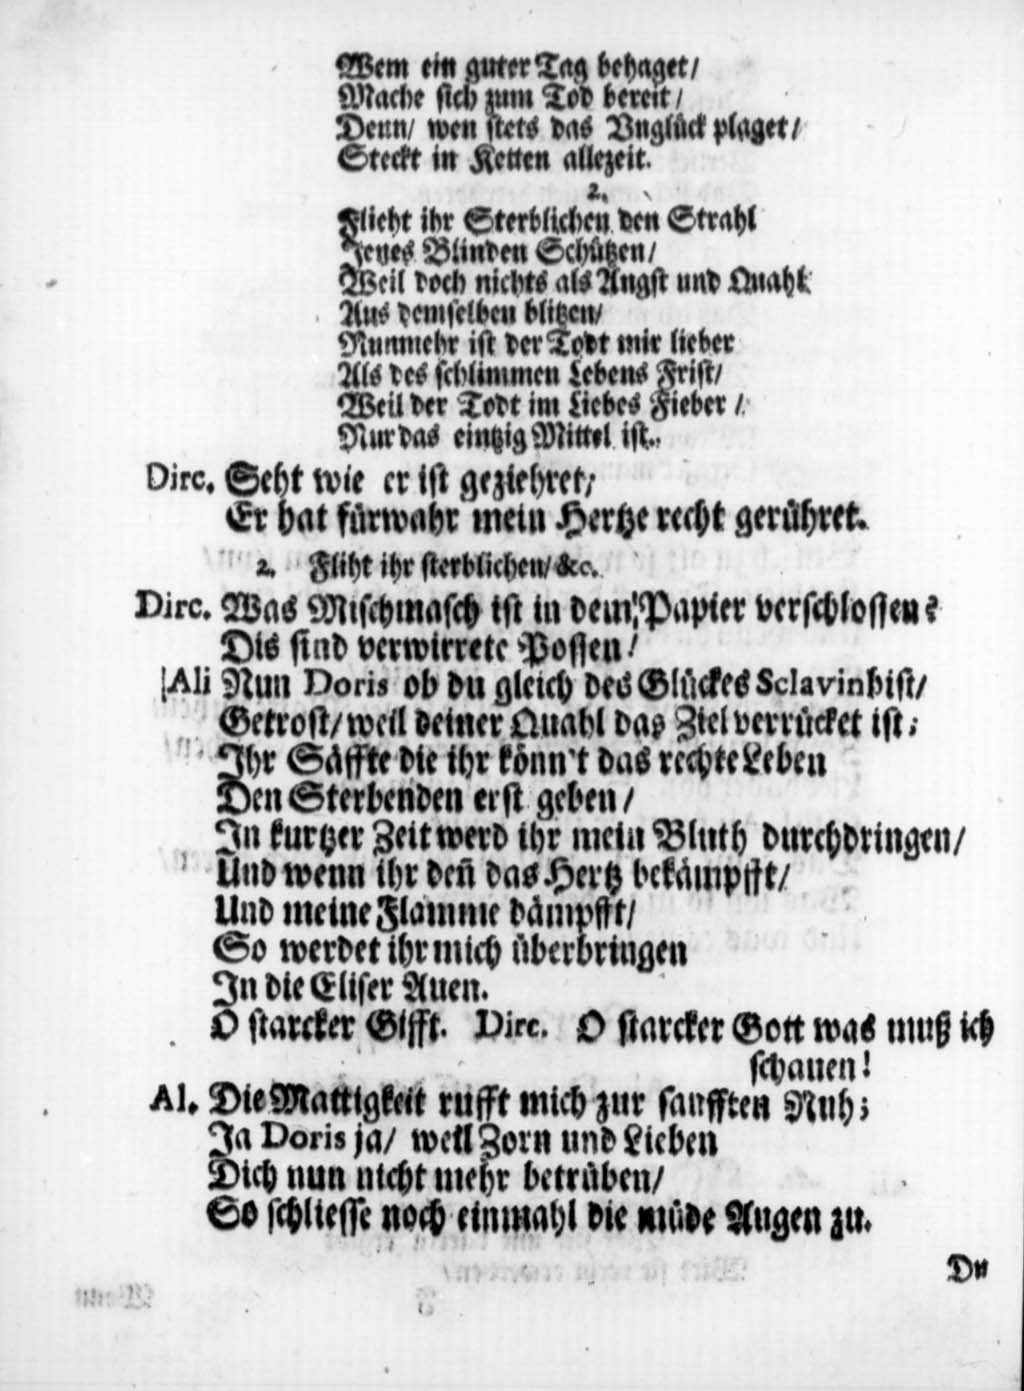 Wem ein guter Tag behaget/
Mache sich zum Tod bereit/
Denn/ wen stets das Vnglück plaget/
Steckt in Ketten allezeit.
2.
Flieht ihr Sterblichen den Strahl
Jenes Blinden Schützen/
Weil doch nichts als Angst und Quahl
Aus demselben blitzen/
Nunmehr ist der Todt mir lieber
Als des schlimmen Lebens Frist/
Weil der Todt im Liebes Fieber/
Nur das eintzig Mittel ist.
Dirc. Seht wie er ist geziehret;
Er hat fürwahr mein Hertze recht gerühret.
2. Fliht ihr sterblichen/ &c.
Dirc. Was Mischmasch ist in dem Papier verschlossen?
Dis sind verwirrete Possen!
Ali Nun Doris ob du gleich des Glückes Sclavin bist/
Getrost/ weil deiner Quahl das Ziel verrücket ist;
Ihr Säffte die ihr könn't das rechte Leben
Den Sterbenden erst geben/
In kurtzer Zeit werd ihr mein Bluth durchdringen/
Und wenn ihr deñ das Hertz bekämpfft/
Und meine Flamme dämpfft/
So werdet ihr mich überbringen
In die Eliser Auen.
O starcker Gifft. Dirc. O starcker Gott was muß ich
schauen!
Al. Die Mattigkeit rufft mich zur sanfften Ruh;
Ja Doris ja/ weil Zorn und Lieben
Dich nun nicht mehr betrüben/
So schliesse noch einmahl die müde Augen zu.
Du